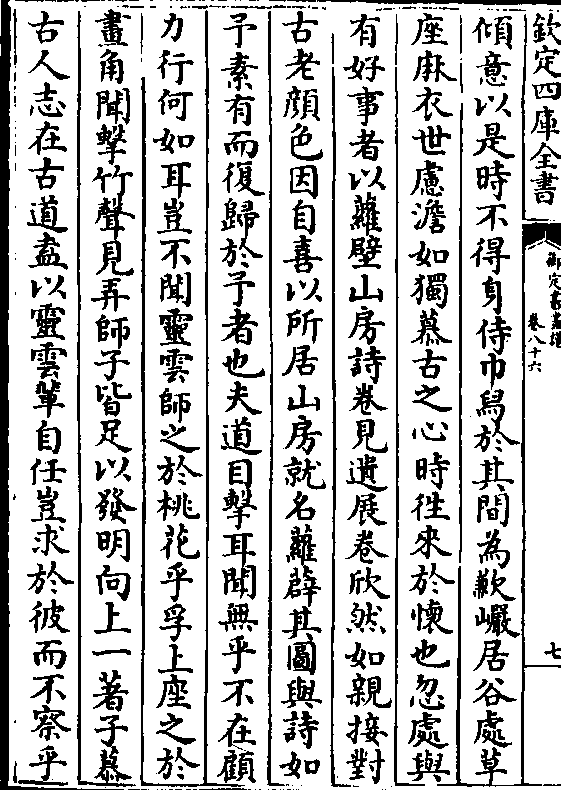 欽定四庫全書
御定書畫譜
卷八十六
七
傾意以是時不得身侍巾舄於其間為歉巗居谷處草
座麻衣世慮澹如獨慕古之心時徃來於懷也忽處與
有好事者以蘿壁山房詩卷見遺展卷欣然如親接對
古老顔色因自喜以所居山房就名蘿辟其圖與詩如
予素有而復歸於予者也夫道目擊耳聞無乎不在顧
力行何如耳豈不聞靈雲師之於桃花乎孚上座之於
畫角聞擊竹聲見弄師子皆足以發明向上一著子慕
古人志在古道盍以靈雲軰自任豈求於彼而不察乎